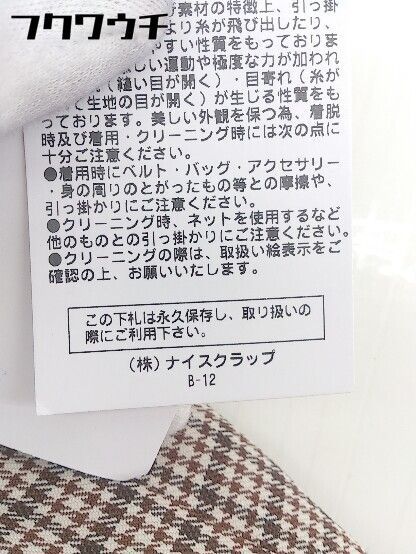 フクワウチ
素材の特徴上、引っ掛
より糸が飛び出したり、
やすい性質をもっておりま
しい運動や極度な力が加われ
(縫い目が開く)・目寄れ(糸が
て生地の目が開く)が生じる性質をも
っております。美しい外観を保つ為、着脱
時及び着用・クリーニング時には次の点に
十分ご注意ください。
●着用時にベルト・バッグ・アクセサリー
・身の周りのとがったもの等との摩擦や、
引っ掛かりにご注意ください。
●クリーニング時、ネットを使用するなど
他のものとの引っ掛かりにご注意ください。
●クリーニングの際は、取扱い絵表示をご
確認の上、お願いいたします。
この下札は永久保存し、取り扱いの
際にご利用下さい。
(株)ナイスクラップ
B-12